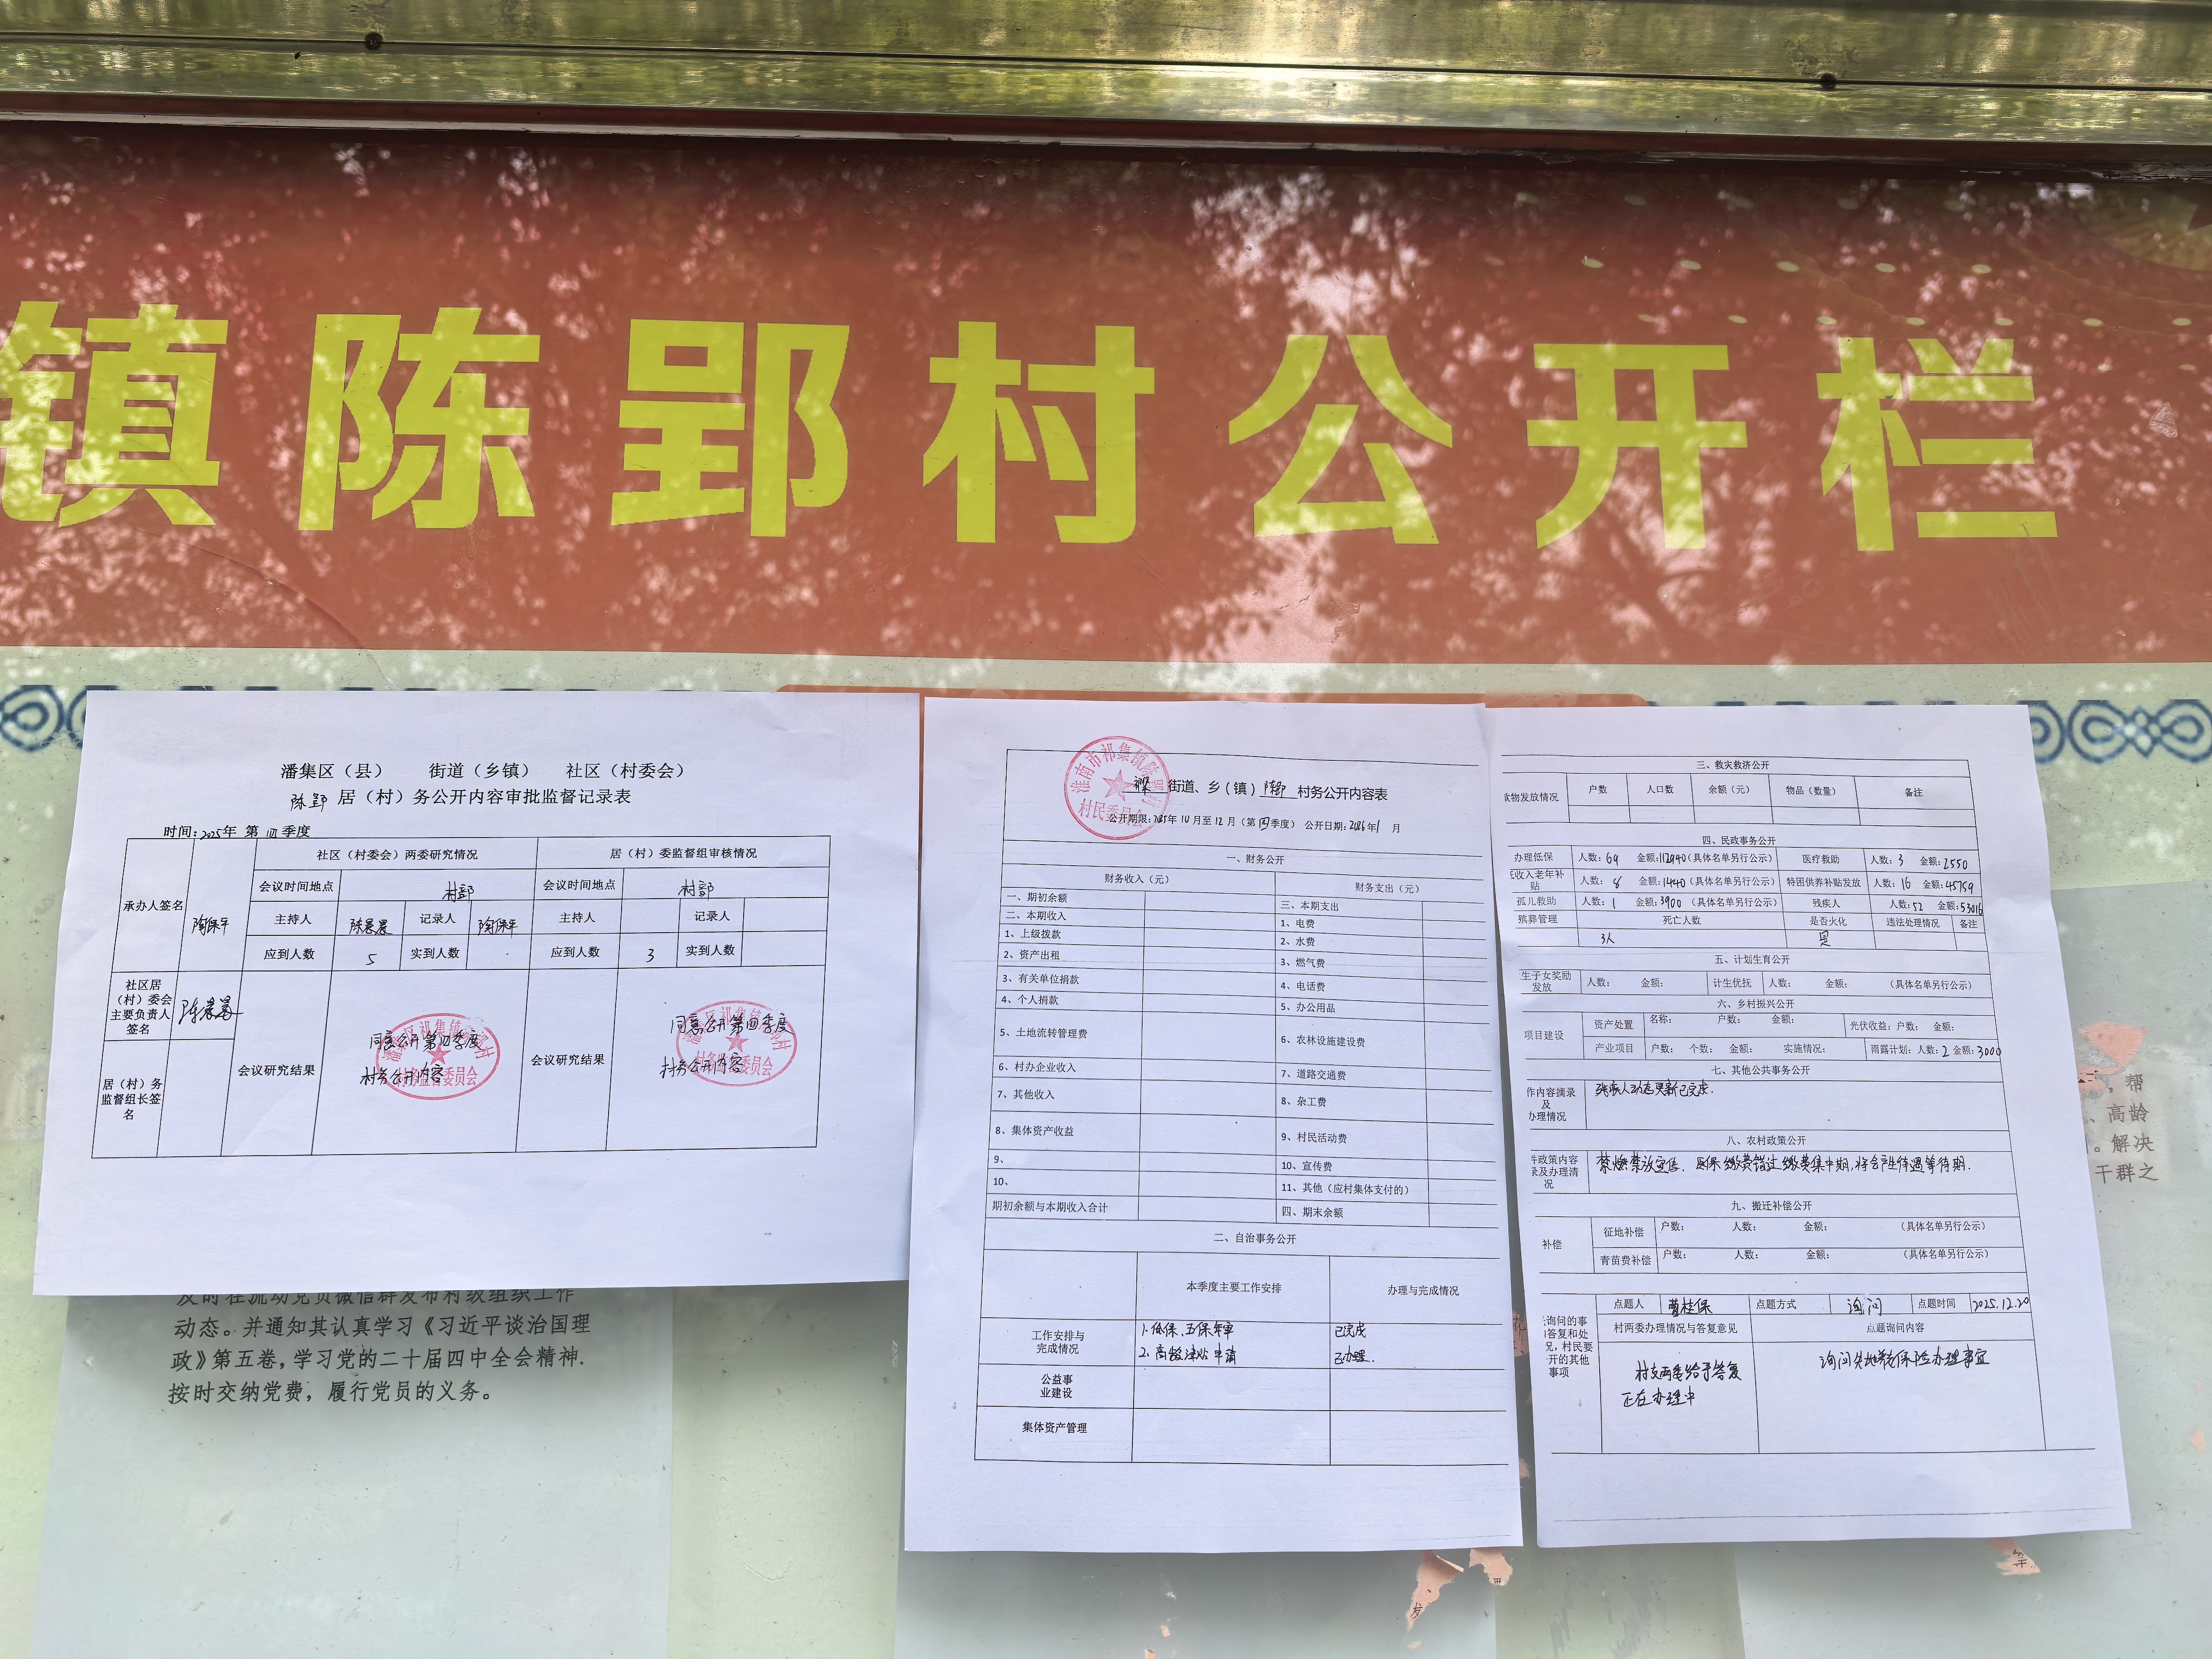 镇陈郢村公开栏
潘集区（县） 街道（乡镇） 社区（村委会）
陈郢 居（村）务公开内容审批监督记录表
时间：2025年 第 四 季度
承办人签名 陶保平
社区（村委会）两委研究情况 居（村）委监督组审核情况
会议时间地点 村部 会议时间地点 村部
主持人 陈晨晨 记录人 陶保平 主持人 记录人
应到人数 5 实到人数 应到人数 3 实到人数
社区居（村）委会主要负责人签名
居（村）务监督组长签名
会议研究结果 同意公开第四季度
村务公开内容
会议研究结果 同意公开第四季度
村务公开内容
村务监督委员会
村务监督委员会
淮南市祁集镇陈郢村
村民委员会
祁集 街道、乡（镇） 陈郢 村务公开内容表
公开期限：2025年10月至12月（第四季度） 公开日期：2026年1 月
一、财务公开
财务收入（元） 财务支出（元）
一、期初余额 三、本期支出
二、本期收入 1、电费
1、上级拨款 2、水费
2、资产出租 3、燃气费
3、有关单位捐款 4、电话费
4、个人捐款 5、办公用品
5、土地流转管理费 6、农林设施建设费
6、村办企业收入 7、道路交通费
7、其他收入 8、杂工费
8、集体资产收益 9、村民活动费
9、 10、宣传费
10、 11、其他（应村集体支付的）
期初余额与本期收入合计 四、期末余额
二、自治事务公开
本季度主要工作安排 办理与完成情况
工作安排与完成情况 1.低保、五保年审 已完成
2.高龄津贴申请 已办理.
公益事业建设
集体资产管理
三、救灾救济公开
款物发放情况 户数 人口数 余额（元） 物品（数量） 备注
四、民政事务公开
办理低保 人数：69 金额：112940（具体名单另行公示） 医疗救助 人数：3 金额：2550
氐收入老年补贴 人数：8 金额：1440（具体名单另行公示） 特困供养补贴发放 人数：16 金额：45759
孤儿救助 人数：1 金额：3900（具体名单另行公示） 残疾人 人数：52 金额：53016
殡葬管理 死亡人数 是否火化 违法处理情况 备注
3人 是
五、计划生育公开
生子女奖励发放 人数： 金额： 计生优抚 人数： 金额： （具体名单另行公示）
六、乡村振兴公开
项目建设 资产处置 名称： 户数： 金额： 光伏收益：户数： 金额：
产业项目 户数： 个数： 金额： 实施情况： 雨露计划：人数：2 金额：3000
七、其他公共事务公开
作内容摘录及办理情况 残疾人动态更新已完成.
八、农村政策公开
政策内容录及办理情况 禁燃禁放宣传、医保缴费错过缴费集中期,将会产生待遇等待期.
九、搬迁补偿公开
补偿 征地补偿 户数： 人数： 金额： （具体名单另行公示）
青苗费补偿 户数： 人数： 金额： （具体名单另行公示）
点题人 曹桂保 点题方式 询问 点题时间 2025.12.20
询问的事 答复和处 况，村民要 开的其他事项
村两委办理情况与答复意见 点题询问内容
村支两委给予答复
正在办理中
询问失地养老保险办理事宜
及时在流动党员微信群发布村级组织工作
动态。并通知其认真学习《习近平谈治国理
政》第五卷，学习党的二十届四中全会精神.
按时交纳党费，履行党员的义务。
，帮
、高龄
。解决
干群之